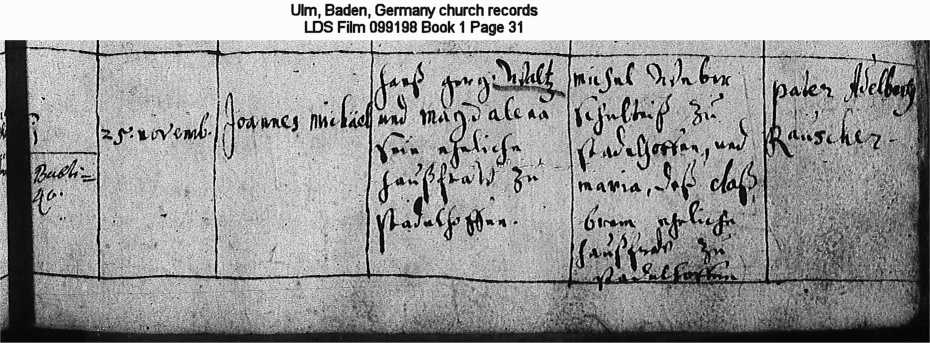 Ulm, Baden, Germany church records
LDS Film 099198 Book 1 Page 31
25. novemb.
Joannes michäel
hanß gorg Waltz
und magdalena
Sein eheliche
haußfraw zu
stadelhoffen.
michel Weber
Schulteiß zu
stadelhoffen, und
maria, deß claß
eheliche
haußfraw zu
stadelhoffen
pater Adelberg
Rauscher.